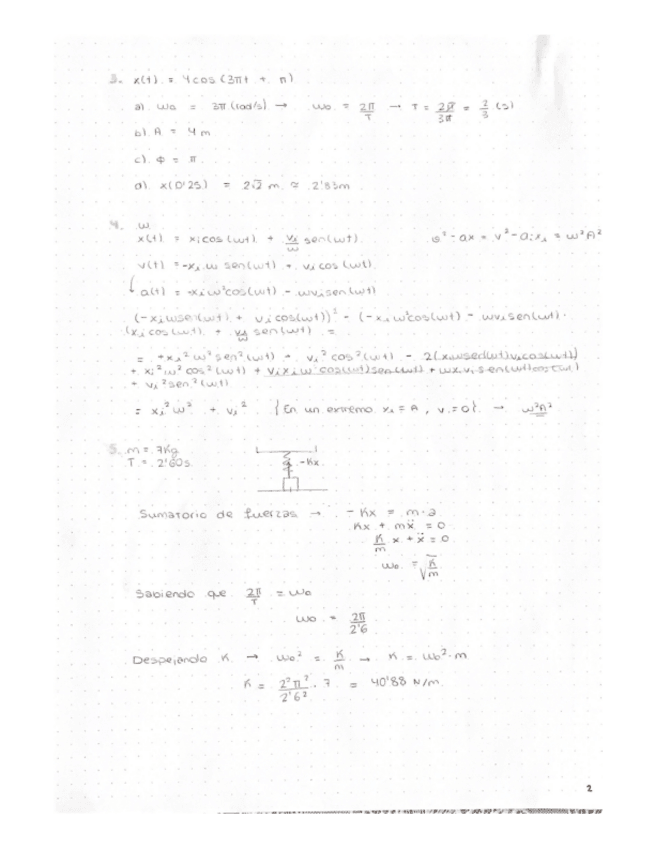 3. x(t) = 4cos(3πt + π)
a). ω₀ = 3π (rad/s) → ω₀ = 2π/T → T = 2π/3π = 2/3 (s)
b). A = 4 m
c). Φ = π
d). x(0'25) = 2√2 m ≈ 2'83m
4. ω
x(t) = xᵢcos(ωt) + vᵢ/ω sen(ωt)
v² - ax = v² - aᵢxᵢ = ω²A²
v(t) = -xᵢ ω sen(ωt) + vᵢ cos(ωt)
a(t) = -xᵢω²cos(ωt) - ωvᵢsen(ωt)
(-xᵢωsen(ωt) + vᵢcos(ωt))² - (-xᵢω²cos(ωt) - ωvᵢsen(ωt)·
(xᵢcos(ωt) + vᵢ/ω sen(ωt) =
= +xᵢ²ω²sen²(ωt) + vᵢ²cos²(ωt) - 2(xᵢωsen(ωt)vᵢcos(ωt))
+ xᵢ²ω²cos²(ωt) + vᵢxᵢω cos(ωt)sen(ωt) + ωxᵢvᵢsen(ωt)cos(ωt)
+ vᵢ²sen²(ωt)
= xᵢ²ω² + vᵢ² {En un extremo xᵢ = A, vᵢ=0} → ω²A²
5. m = 7Kg
T = 2'60s
-Kx
Sumatorio de fuerzas → -Kx = m·a
Kx + mẍ = 0
K/m x + ẍ = 0
ω₀ = √K/m
Sabiendo que 2π/T = ω₀
ω₀ = 2π/2'6
Despejando K → ω₀² = K/m → K = ω₀²·m
K = 2²π²/2'6² · 7 = 40'88 N/m
2